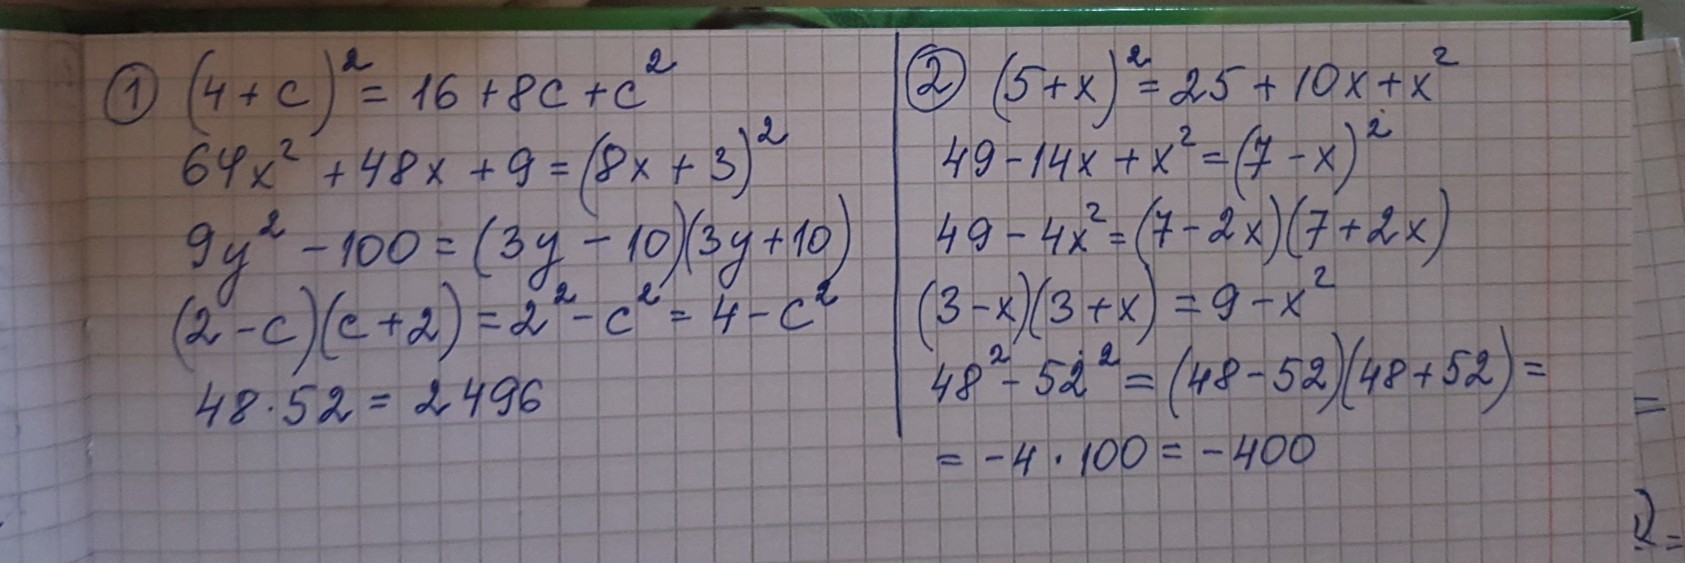 ① (4+c)² = 16+8c+c²
64x² + 48x + 9 = (8x + 3)²
9y² - 100 = (3y - 10)(3y+10)
(2-c)(c+2) = 2² - c² = 4 - c²
48·52 = 2496
② (5+x)² = 25 + 10x + x²
49 - 14x + x² = (7 - x)²
49 - 4x² = (7 - 2x)(7 + 2x)
(3-x)(3+x) = 9 - x²
48² - 52² = (48 - 52)(48 + 52) =
= -4 · 100 = -400